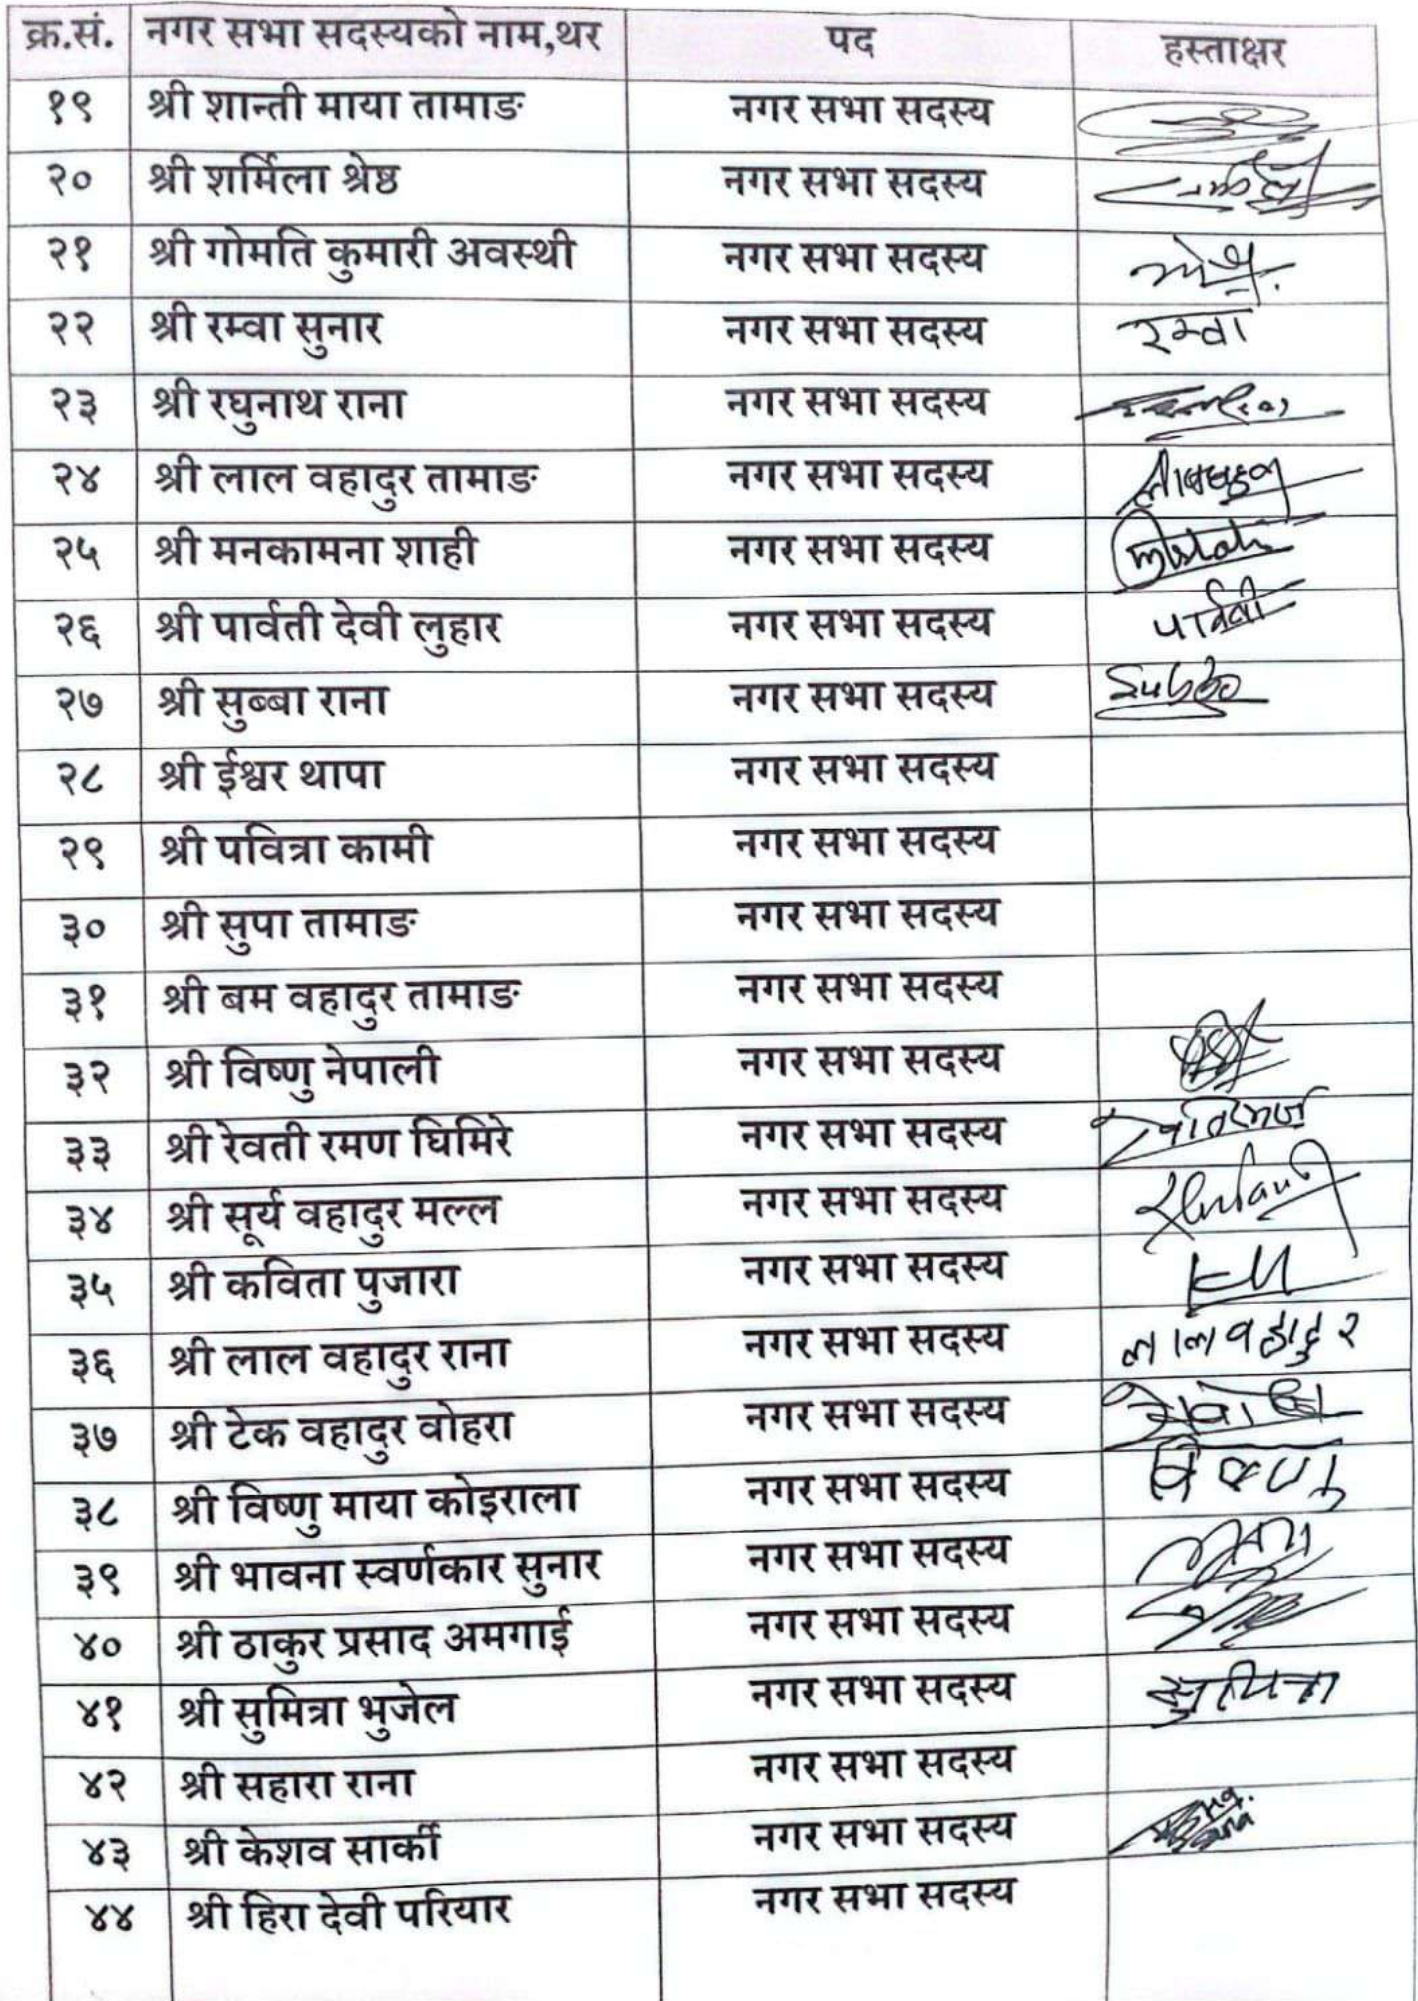 क्र.सं. नगर सभा सदस्यको नाम,थर पद हस्ताक्षर
१९ श्री शान्ती माया तामाङ नगर सभा सदस्य
२० श्री शर्मिला श्रेष्ठ नगर सभा सदस्य
२१ श्री गोमति कुमारी अवस्थी नगर सभा सदस्य
२२ श्री रम्वा सुनार नगर सभा सदस्य रम्वा
२३ श्री रघुनाथ राना नगर सभा सदस्य
२४ श्री लाल वहादुर तामाङ नगर सभा सदस्य
२५ श्री मनकामना शाही नगर सभा सदस्य
२६ श्री पार्वती देवी लुहार नगर सभा सदस्य
२७ श्री सुब्बा राना नगर सभा सदस्य
२८ श्री ईश्वर थापा नगर सभा सदस्य
२९ श्री पवित्रा कामी नगर सभा सदस्य
३० श्री सुपा तामाङ नगर सभा सदस्य
३१ श्री बम वहादुर तामाङ नगर सभा सदस्य
३२ श्री विष्णु नेपाली नगर सभा सदस्य
३३ श्री रेवती रमण घिमिरे नगर सभा सदस्य
३४ श्री सूर्य वहादुर मल्ल नगर सभा सदस्य
३५ श्री कविता पुजारा नगर सभा सदस्य
३६ श्री लाल वहादुर राना नगर सभा सदस्य लालवहादुर
३७ श्री टेक वहादुर वोहरा नगर सभा सदस्य
३८ श्री विष्णु माया कोइराला नगर सभा सदस्य विष्णु
३९ श्री भावना स्वर्णकार सुनार नगर सभा सदस्य
४० श्री ठाकुर प्रसाद अमगाई नगर सभा सदस्य
४१ श्री सुमित्रा भुजेल नगर सभा सदस्य सुमित्रा
४२ श्री सहारा राना नगर सभा सदस्य
४३ श्री केशव सार्की नगर सभा सदस्य
४४ श्री हिरा देवी परियार नगर सभा सदस्य